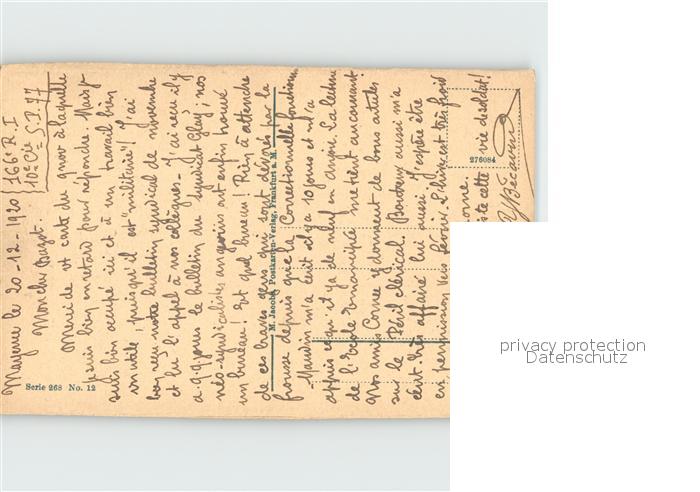 Mayence le 20-12-1920
166e R.I
10e Cie S.P. 77
Mon cher Bazot.
Merci de ta carte du 9 nov à laquelle
je suis bien en retard pour répondre. Mais je
suis bien occupé ici et à un travail bien
inutile, puisqu'il est "militaire"! J'ai
bien reçu notre bulletin syndical de novembre
et lu l'appel à nos collègues - J'ai reçu il y
a qq jours le bulletin du syndicat Glay; nos
néo-syndicalistes angevins ont enfin trouvé
un bureau! Et quel bureau! Rien à attendre
de ces braves gens qui sont dévorés par la
frousse depuis que la Correctionnelle fonctionne
- Maudin m'a écrit il y a 10 jours et m'a
appris ce qu'il y a de neuf en Anjou. La lecture
de l'Ecole Emancipée me tient au courant.
Nos amis Cornec y donnent de bons articles
sur le Péril clérical. Bouteux aussi m'a
écrit très affairé lui aussi. J'espère être
en permission vers février. L'hiver est très froid
vie de soldat!
Serie 268 No. 12
M. Jacobs, Postkarten-Verlag, Frankfurt a. M.
276084
privacy protection
Datenschutz